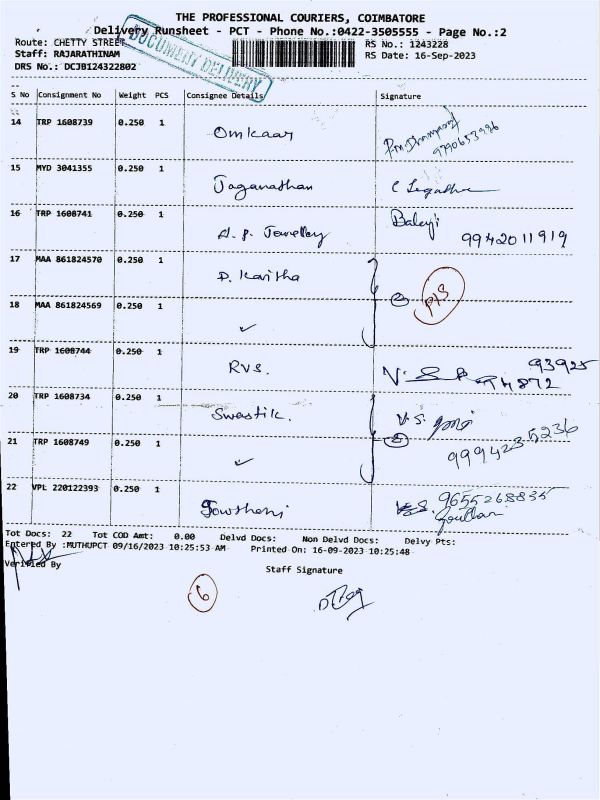 THE PROFESSIONAL COURIERS, COIMBATORE
Delivery Runsheet - PCT - Phone No.:0422-3505555 - Page No.:2
Route: CHETTY STREET
RS No.: 1243228
Staff: RAJARATHINAM
RS Date: 16-Sep-2023
DRS No.: DCJB124322802
DOCUMENT DELIVERY
S No Consignment No Weight PCS Consignee Details Signature
14 TRP 1608739 0.250 1 Omkaar
9790653996
15 MYD 3041355 0.250 1 Jaganathan
16 TRP 1608741 0.250 1 A.P. Jewellery Balaji 9942011919
17 MAA 861824570 0.250 1 D. Kavitha
18 MAA 861824569 0.250 1 ✓
19 TRP 1608744 0.250 1 RVS. 93925
74872
20 TRP 1608734 0.250 1 Swastik. V.S.
21 TRP 1608749 0.250 1 ✓ 9994235236
22 VPL 220122393 0.250 1 Gowthami 9655268835
Tot Docs: 22 Tot COD Amt: 0.00 Delvd Docs: Non Delvd Docs: Delvy Pts:
Entered By :MUTHUPCT 09/16/2023 10:25:53 AM Printed On: 16-09-2023 10:25:48
Verified By
Staff Signature
6